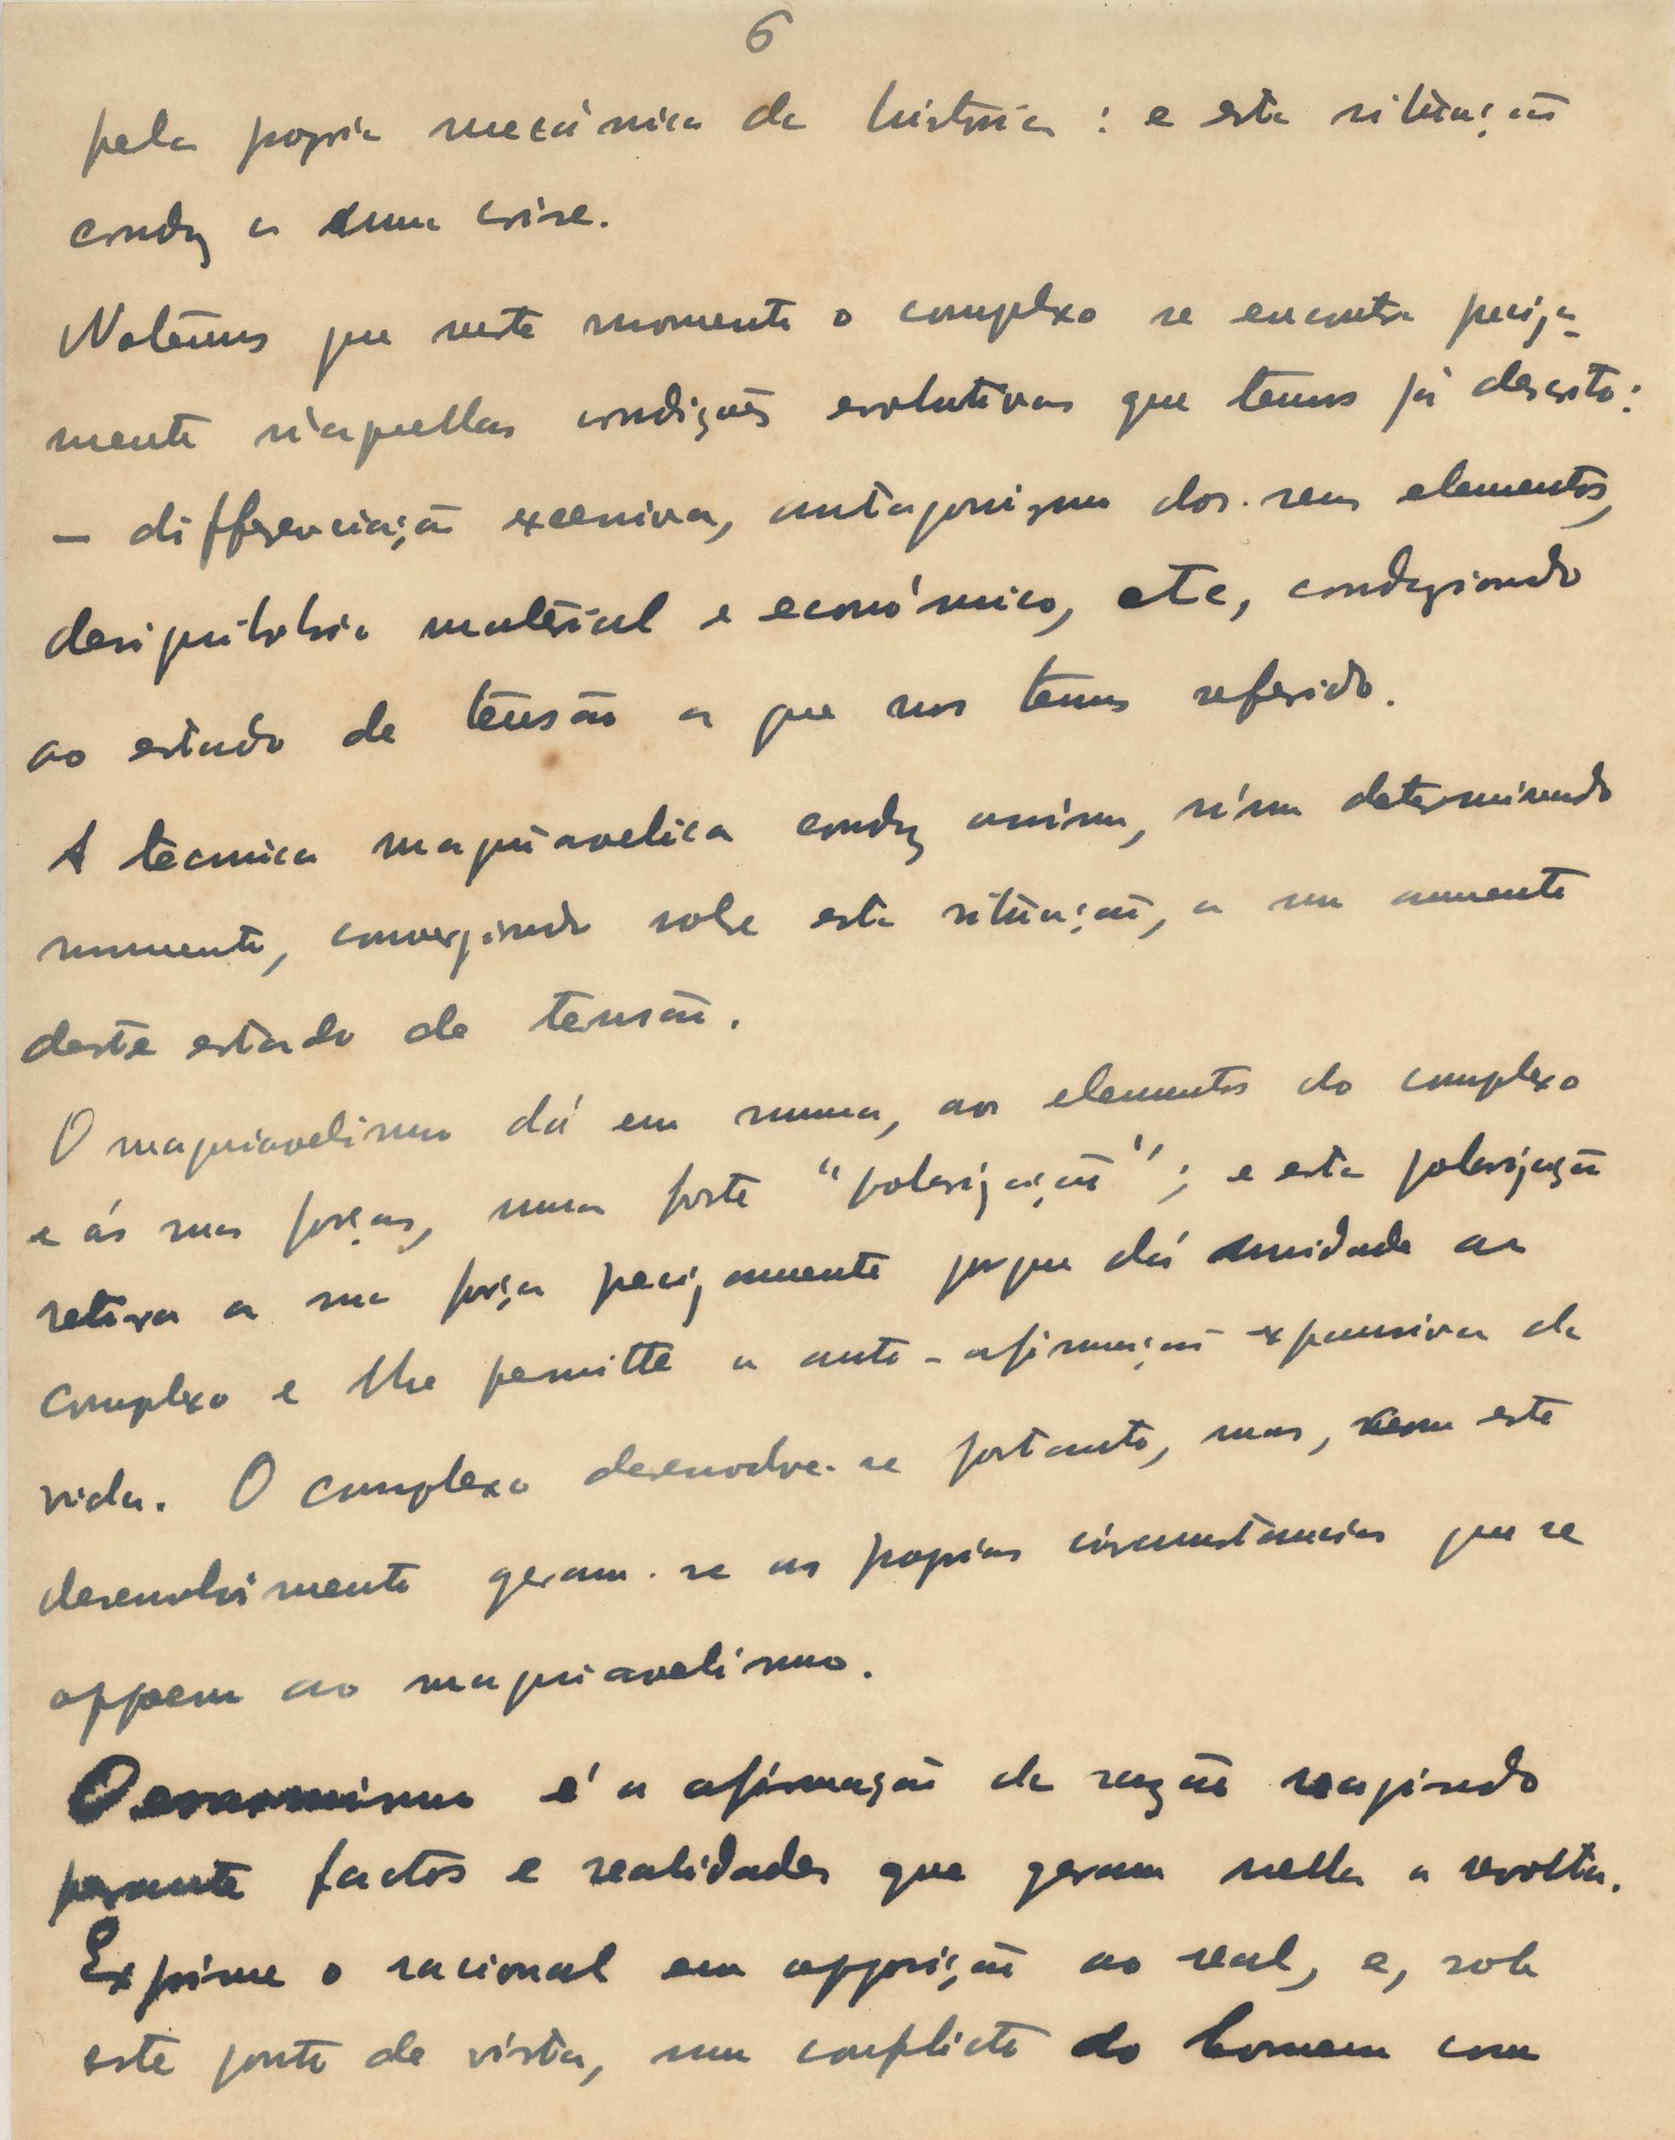 6
pela propria mecánica da historia : e esta situação
conduz a uma crise.
Notêmos que neste momento o complexo se encontra preciza-
mente n'aquellas condições evolutivas que temos já descrito:
— differenciação excessiva, antagonismo dos seus elementos,
desiquilibrio material e económico, etc, conduzindo
ao estado de tensão a que nos temos referido.
A tecnica maquiavelica conduz assim, n'um determinado
momento, convergindo sobre esta situação, a um aumento
deste estado de tensão.
O maquiavelismo dá em summa, aos elementos do complexo
e ás suas forças, uma forte "polarização" ; e esta polarização
retira a sua força precizamente porque dá unidade ao
complexo e lhe permitte a auto-afirmação expansiva da
vida. O complexo desenvolve-se portanto, mas, com este
desenvolvimento geram-se as proprias circumstancias que se
oppoem ao maquiavelismo.
O erasmismo é a afirmação da razão reagindo
perante factos e realidades que geram nella a revolta.
Exprime o racional em opposição ao real, e, sob
este ponto de vista, um conflicto do homem com